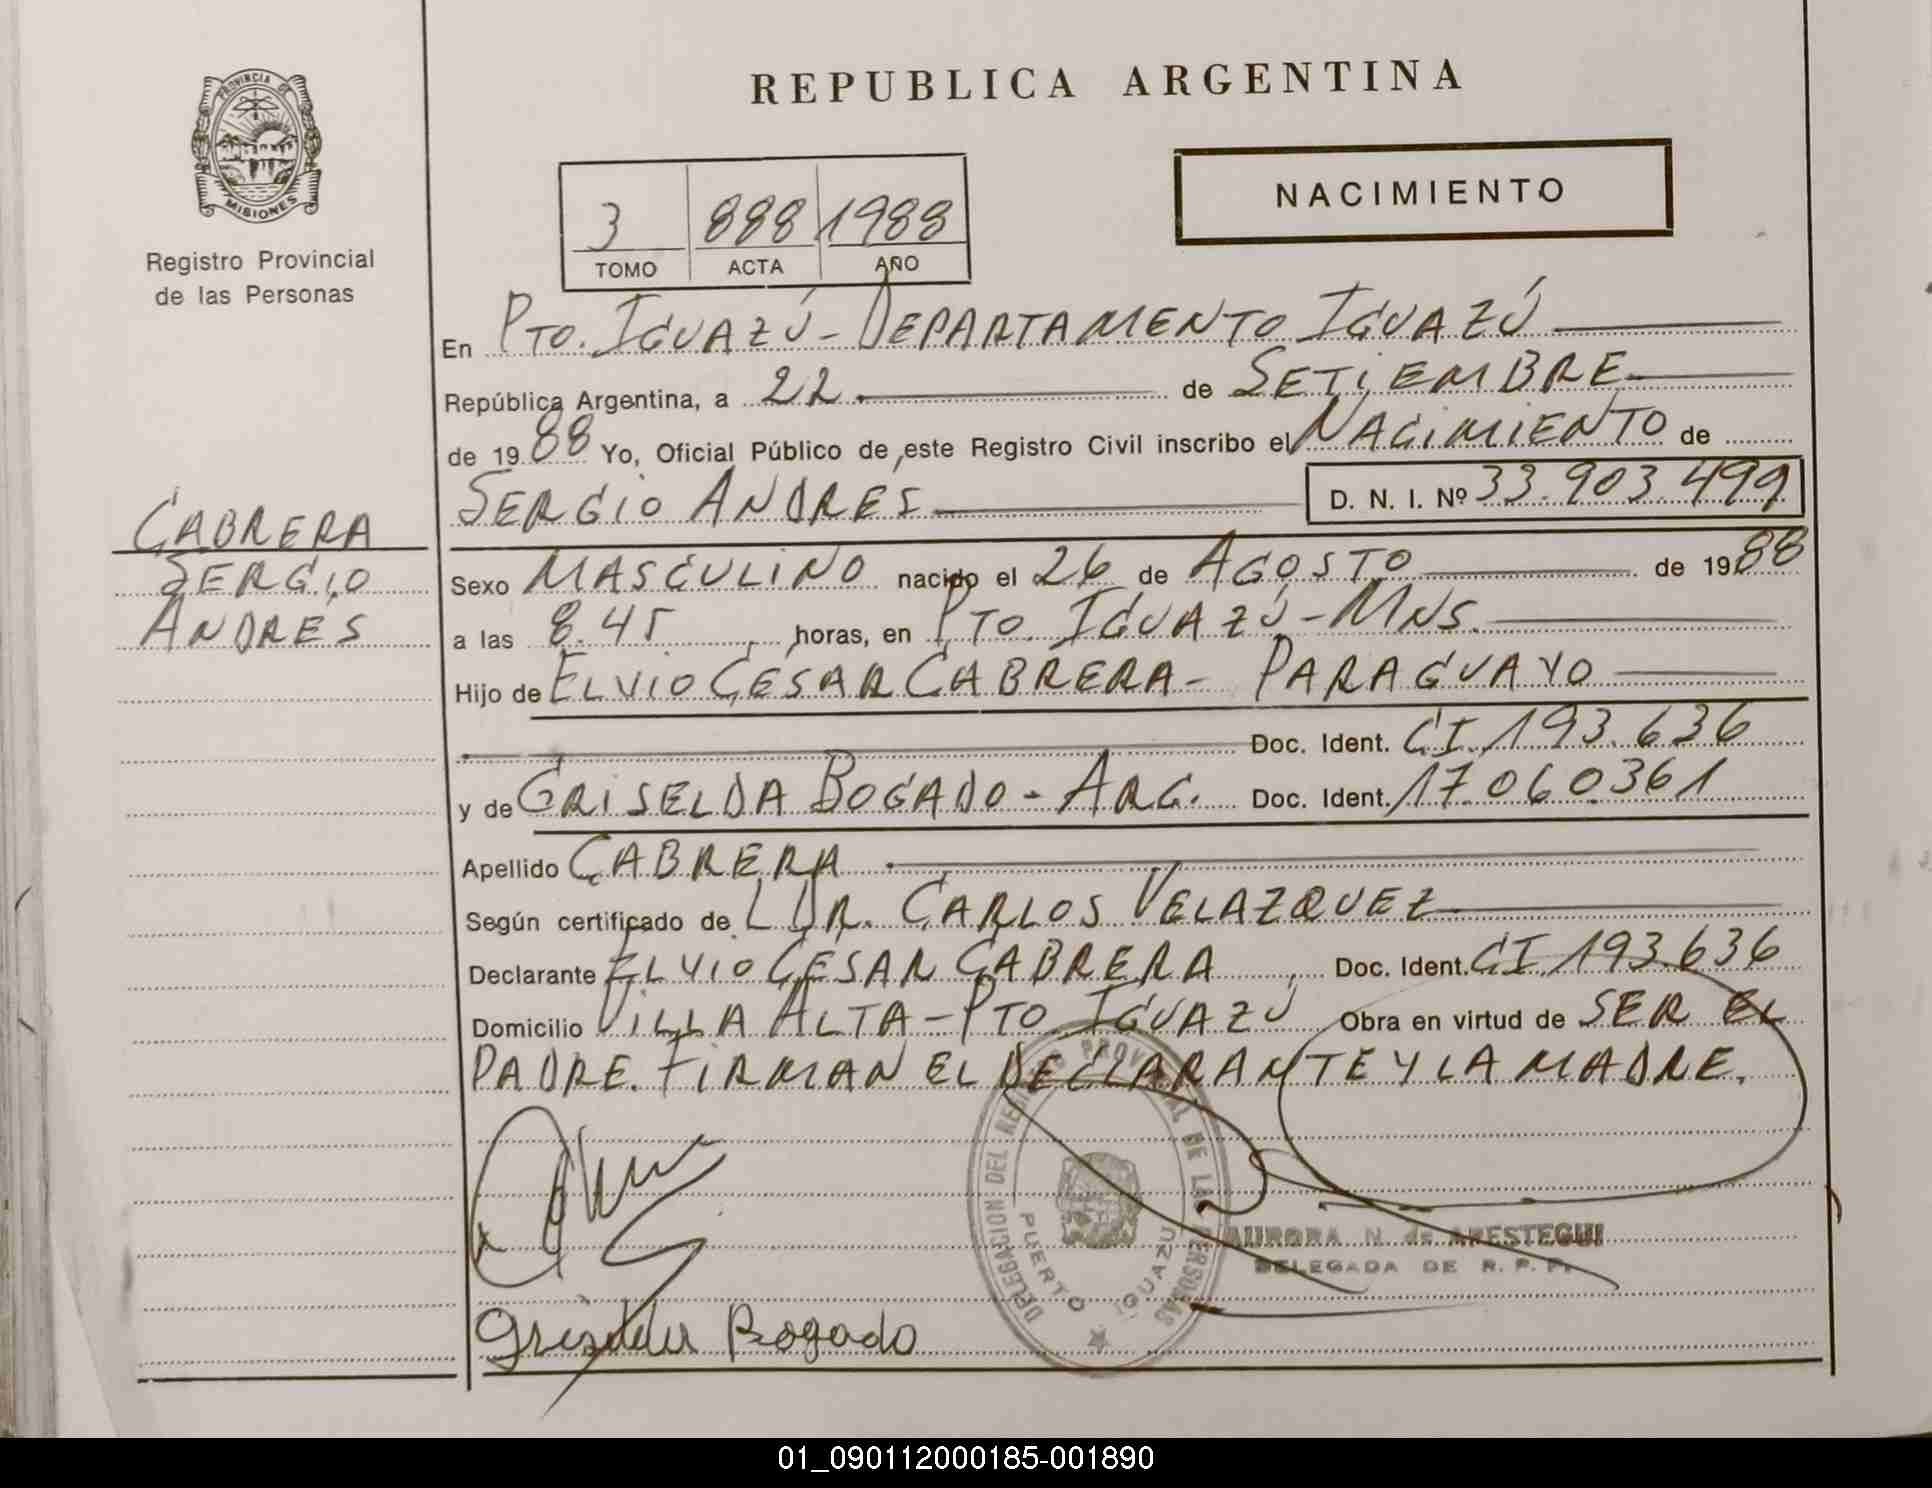 REPUBLICA ARGENTINA
PROVINCIA DE
MISIONES
Registro Provincial
de las Personas
NACIMIENTO
3 888 1988
TOMO ACTA AÑO
En PTO. IGUAZÚ - DEPARTAMENTO IGUAZÚ
República Argentina, a 22 de SETIEMBRE
de 1988 Yo, Oficial Público de este Registro Civil inscribo el NACIMIENTO de
SERGIO ANDRES D. N. I. Nº 33.903.499
CABRERA
SERGIO
ANDRÉS
Sexo MASCULINO nacido el 26 de AGOSTO de 1988
a las 8.45 horas, en PTO. IGUAZÚ - MNS.
Hijo de ELVIO CÉSAR CABRERA - PARAGUAYO
Doc. Ident. CI. 193.636
y de GRISELDA BOGADO - ARG. Doc. Ident. 17.060.361
Apellido CABRERA
Según certificado de L DR. CARLOS VELAZQUEZ
Declarante ELVIO CESAR CABRERA Doc. Ident. CI 193.636
Domicilio VILLA ALTA - PTO IGUAZÚ Obra en virtud de SER EL
PADRE. FIRMAN EL DECLARANTE Y LA MADRE.
DELEGACION DEL REGISTRO PROVINCIAL DE LAS PERSONAS
PUERTO IGUAZU
AURORA N. de ARESTEGUI
DELEGADA DE R. P. P.
Griselda Bogado
01_090112000185-001890